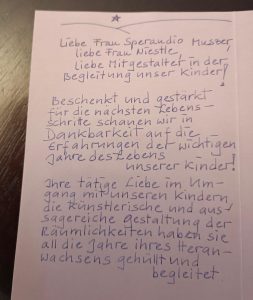 Liebe Frau Sperandio Muster,
liebe Frau Niestle,
liebe Mitgestalter in der
Begleitung unser Kinder!
Beschenkt und gestärkt
für die nächsten Lebens-
schritte schauen wir in
Dankbarkeit auf die
Erfahrungen der wichtigen
Jahre des Lebens
unserer Kinder!
Ihre tätige Liebe im Um-
gang mit unseren Kindern
die künstlerische und aus-
sagereiche Gestaltung der
Räumlichkeiten haben sie
all die Jahre ihres Heran-
wachsens gehüllt und
begleitet